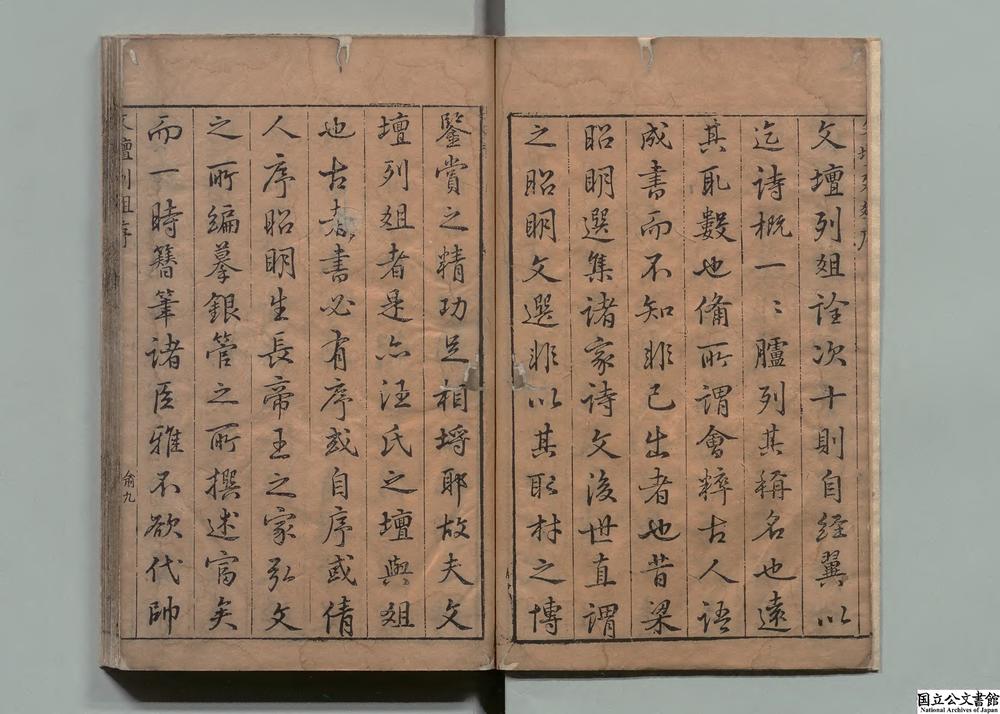 文壇列俎詮次十則自經翼以
迄詩概一〻臚列其稱名也遠
其取數也備所謂會粹古人語
成書而不知非已出者也昔梁
昭明選集諸家詩文後世直謂
之昭明文選非以其取材之博
鑒賞之精功足相埒耶故夫文
壇列俎者是亦汪氏之壇與俎
也古者書必有序或自序或倩
人序昭明生長帝王之家弘文
之所編摹銀管之所撰述富矣
而一時簪筆諸臣雅不欲代帥
文壇列俎序
俞九
国立公文書館
National Archives of Japan